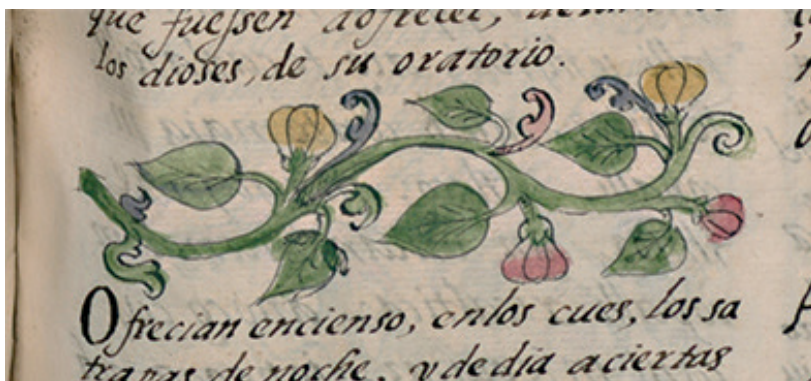 que fuessen a ofrecer, delante de
los dioses, de su oratorio.
Ofrecian encienso, enlos cues, los sa
trapas de noche, y de dia aciertas